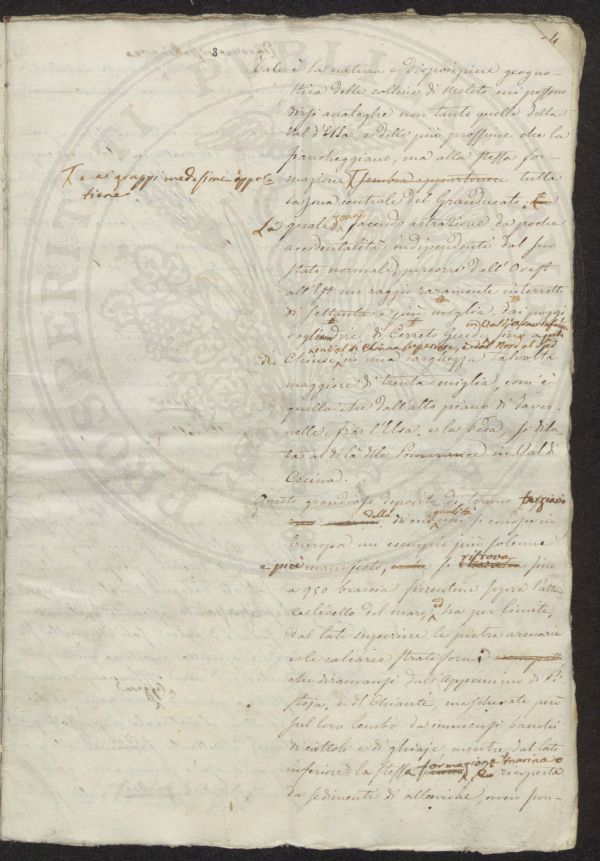 3
4
Tale è la natura e disposizione geogno-
stica delle colline di Meleto cui possono
dirsi analoghe non tanto quelle della
Val d'Elsa, e dello più prossime che la
fiancheggiano, ma alla stessa for-
mazione sembra appartenere tutta
e ai grappi medesimi appar-
tiene.
la zona centrale del Granducato.
La quale zona, facendo astrazione da poche
accidentalità indipendenti dal suo
stato normale, percorre dall'Ovest
all'Est un raggio raramente interrotto
di settanta e più miglia, dai poggi
di Cerreto Guidi, in Val d'Arno inferiore
in Val di Chiana superiore, e dal Nord al Sud
Chiusi, in una larghezza talvolta
maggiore di trenta miglia, com'è
quella che dall'alto piano di Taver-
nelle, fra l'Elsa, e la Pesa, si dila-
ta al di là delle Pomarance in Val di
Cecina.
Questo grandioso deposito di terreno
della qualità di cui si conosce in
Europa un esempio più solenne
e più manifesto, si ritrova fino
a 950 braccia fiorentine sopra l'attua-
le livello del mare, ed ha per limite,
dal lato superiore le pietre arenarie
e le calcaree stratiformi
che diramansi dall'Appennino di Pi-
stoja, e del Chianti, mascherate però
sul loro lembo da immensi banchi
di ciottoli e di ghiaje mentre dal lato
inferiore la stessa formazione marina è
ricoperta
da sedimenti di alluvione, ovvero